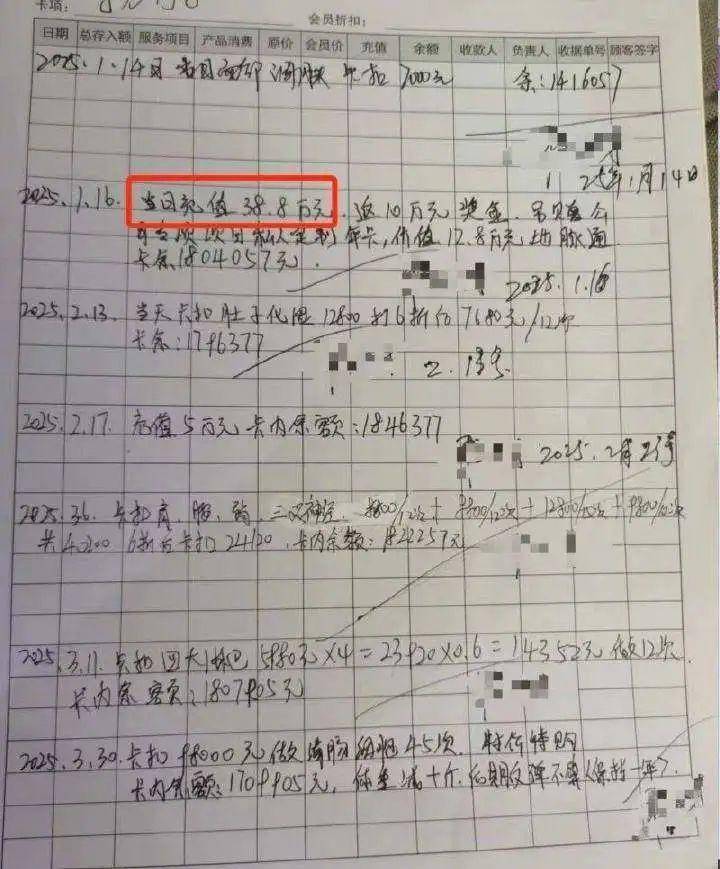 卡项:
会员折扣:
日期 总存入额 服务项目 产品消费 原价 会员价 充值 余额 收款人 负责人 收据单号 顾客签字
2025.1.14日 卡扣 7000元 余:1416057
25年1月14日
2025.1.16. 当日充值38.8万元.返10万元奖金.
年卡,价值12.8万元
卡余1804057元.
2025.1.16
2025.2.13. 当天卡扣肚子 12800打6折后7680元/12次
卡余:1796377
2.13号
2025.2.17. 充值5万元 卡内余额:1846377
2025.2月23号
2025.3.6. 卡扣肩、腿、三叉神经 9800/12次+12800/12次+9800/12次
共40200 6折后卡扣24120.卡内余额:1822257元
2025.3.11.卡扣四大 5980元×4=23920×0.6=14352元 做12次.
卡内余额:1807905元
2025.3.30.卡扣98000元做 45次. 特价特购
卡内余额:1709905元,体重减十斤.